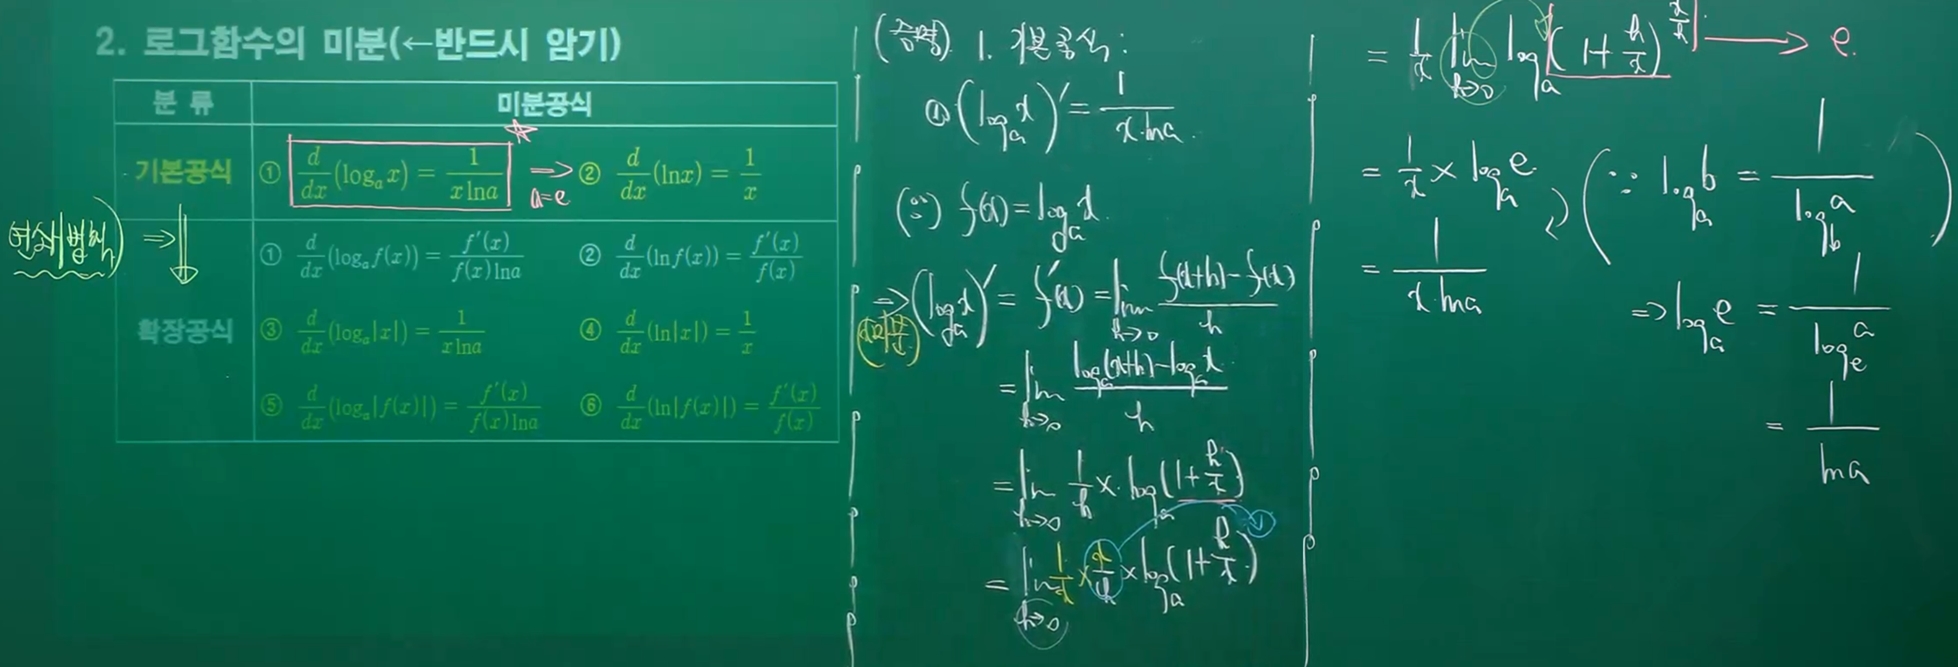 2. 로그함수의 미분(←반드시 암기)
분류 미분공식
기본공식 ① d/dx (logₐx) = 1/(x lna) ⇒ a=e ② d/dx (lnx) = 1/x
⇒
확장공식
① d/dx (logₐf(x)) = f'(x)/(f(x)lna) ② d/dx (lnf(x)) = f'(x)/f(x)
③ d/dx (logₐ|x|) = 1/(x lna) ④ d/dx (ln|x|) = 1/x
⑤ d/dx (logₐ|f(x)|) = f'(x)/(f(x)lna) ⑥ d/dx (ln|f(x)|) = f'(x)/f(x)
(증명). 1. 기본공식:
① (logₐx)' = 1/(x·lna)
(∵) f(x) = logₐx.
⇒ (logₐx)' = f'(x) = lim h→0 (f(x+h)-f(x))/h
= lim h→0 (logₐ(x+h)-logₐx)/h
= lim h→0 1/h × logₐ(1+h/x)
= lim h→0 1/x × x/h × logₐ(1+h/x)
①
= 1/x lim h→0 logₐ(1+h/x)^(x/h) → e.
= 1/x × logₐe
= 1/(x·lna)
(∵ logₐb = 1/(log_b a))
⇒ logₐe = 1/(logₑa)
= 1/lna